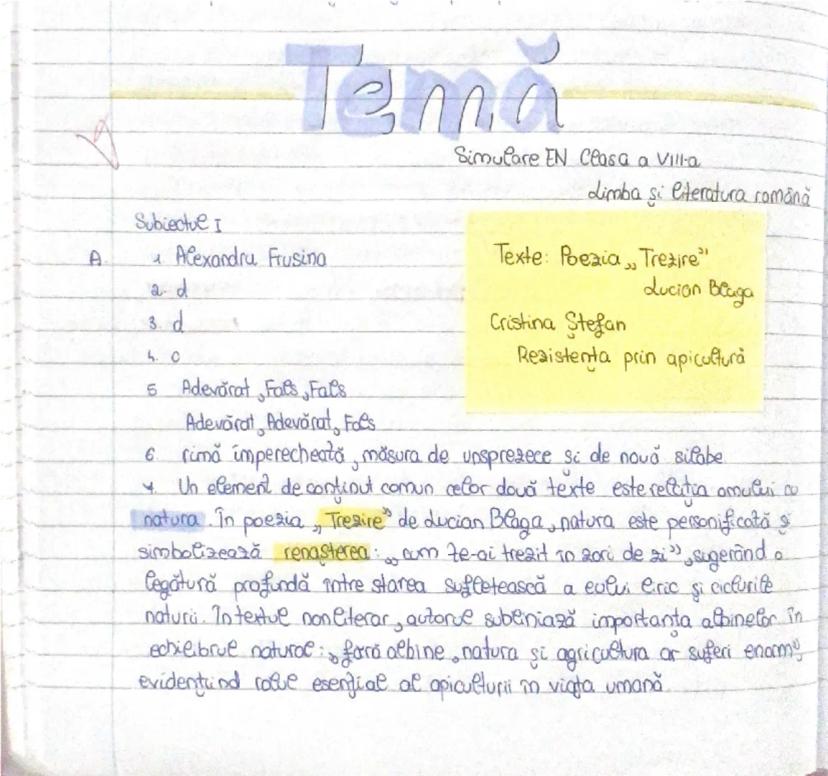 Temă
Simulare EN Clasa a VIII-a
Limba și literatura română
Subiectul I
Texte: Poezia „Trezire”
Lucian Blaga
Cristina Ștefan
Rezistența prin apicultură
A. 1. Alexandru Frusina
2. d
3. d
4. c
5. Adevărat, Fals, Fals
Adevărat, Adevărat, Fals
6. rimă împerecheată, măsura de unsprezece și de nouă silabe
7. Un element de conținut comun celor două texte este relația omului cu
natura. În poezia „Trezire” de Lucian Blaga, natura este personificată și
simbolizează renașterea: „cum te-ai trezit în zori de zi”, sugerând o
legătură profundă între starea sufletească a eului liric și ciclurile
naturii. În textul nonliterar, autorul subliniază importanța albinelor în
echilibrul natural: „fără albine, natura și agricultura ar suferi enorm”
evidențiind rolul esențial al apiculturii în viața umană.